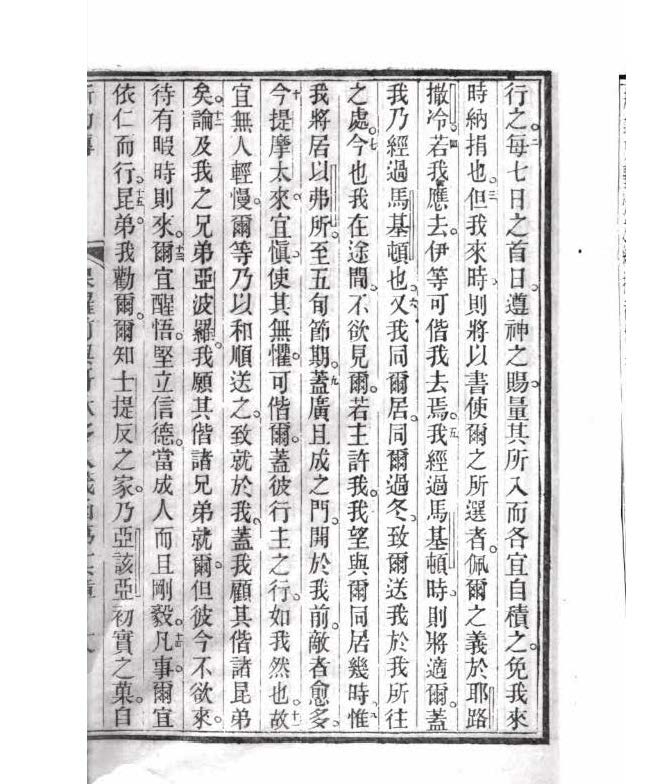 行之。二每七日之首日。遵神之賜。量其所入而各宜自積之。免我來
時納捐也。三但我來時。則將以書使爾之所選者。佩爾之義於耶路
撒冷。四若我應去。伊等可偕我去焉。五我經過馬基頓時。則將適爾。蓋
我乃經過馬基頓也。六又我同爾居。同爾過冬。致爾送我於我所往
之處。七今也我在途間。不欲見爾。若主許我。我望與爾同居幾時。八惟
我將居以弗所。至五旬節期。九蓋廣且成之門。開於我前。敵者愈多。
十今提摩太來。宜愼使其無懼。可偕爾。蓋彼行主之行。如我然也。十一故
宜無人輕慢。爾等乃以和順送之。致就於我。蓋我顧其偕諸昆弟
矣。十二論及我之兄弟亞波羅。我願其偕諸兄弟就爾。但彼今不欲來。
待有暇時則來。十三爾宜醒悟。堅立信德。當成人而且剛毅。十四凡事爾宜
依仁而行。十五昆弟我勸爾。爾知士提反之家。乃亞該亞初實之菓。自